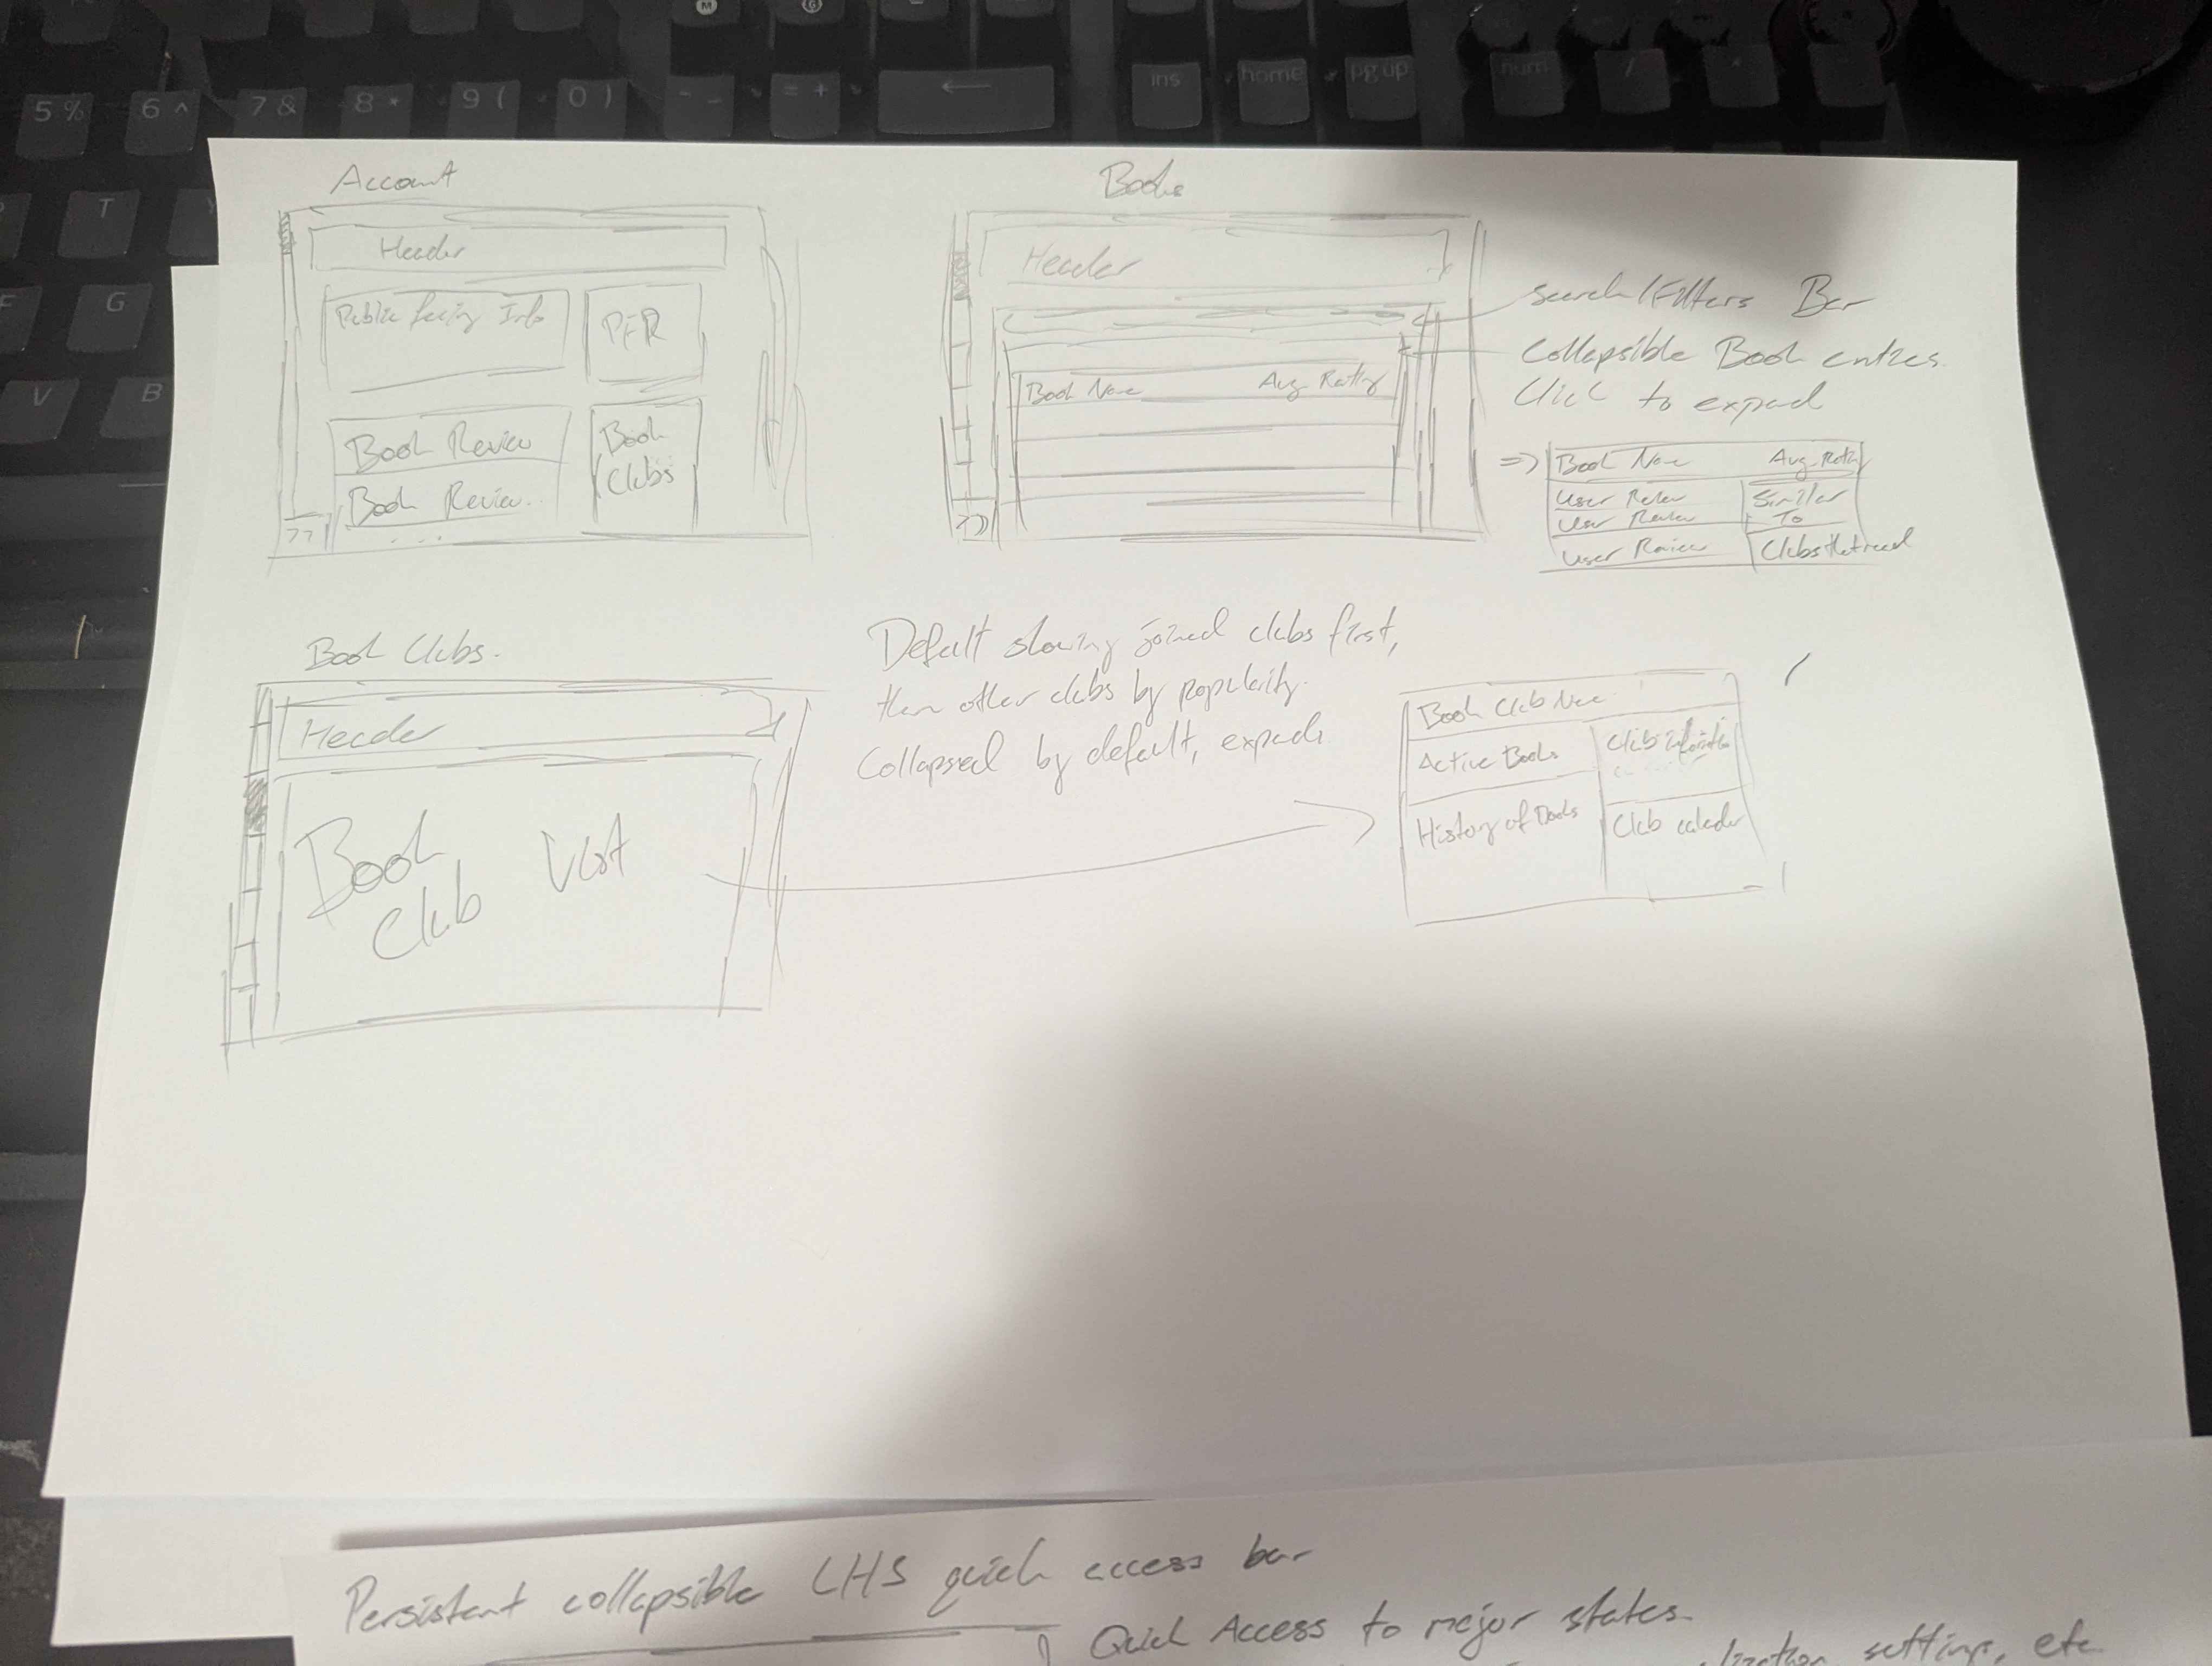 5 %
6 ^
7 &
8 *
9 (
0 )
- _
= +
←
ins
home
pg up
num
/
*
-
M
G
T
G
V
B
F
Account
Header
Public facing Info
PFR
Book Review
Book Review
...
Book
Clubs
>>
Books
Header
Book Name Avg. Rating
>>
Search/Filters Bar
Collapsible Book entries
Click to expand
=>
Book Name Avg. Rating
User Review
User Review
User Review
Similar
To
Clubs that read
Book Clubs.
Header
Book
Club
List
Default showing joined clubs first,
then other clubs by popularity.
Collapsed by default, expands
Book Club Name
Active Books
Club information
History of Books
Club calendar
Persistent collapsible LHS quick access bar
Quick Access to major states.
settings, etc